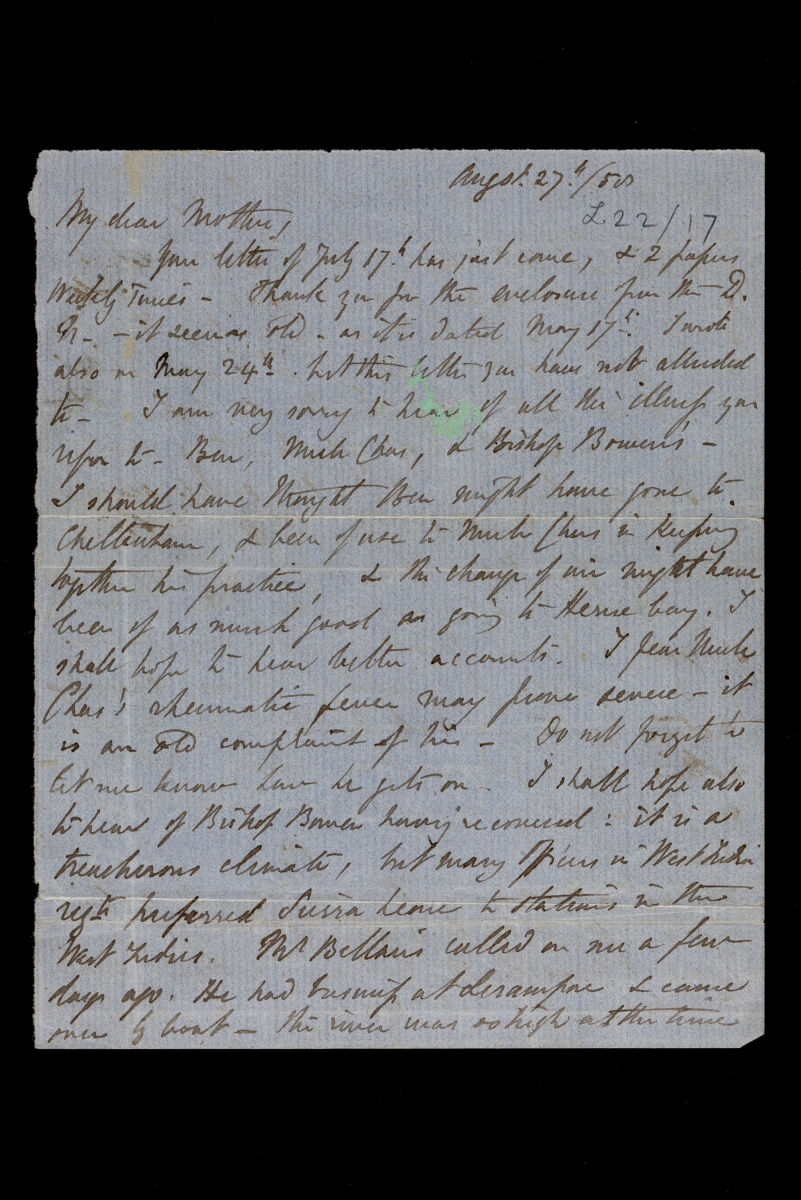 Augst. 27th/58
L22/17
My dear Mother,
Your letter of July 17th has just come, & 2 papers
Weekly Times - Thank you for the enclosure from the D.
N. - it seems old - as it is dated May 17th. I wrote
also on May 24th. but this letter you have not alluded
to - I am very sorry to hear of all the illness you
refer to - Ben, Uncle Chas, & Bishop Bowen's -
I should have thought Ben might have gone to
Cheltenham, & been of use to Uncle Chas in keeping
together his practice, & the change of air might have
been of as much good as going to Herne bay. I
shall hope to hear better accounts. I fear Uncle
Chas's rheumatic fever may prove severe - it
is an old complaint of his - Do not forget to
let me know how he gets on - I shall hope also
to hear of Bishop Bowen having recovered: it is a
treacherous climate, but many officers in West India
regts preferred Sierra Leone to stations in the
West Indies. Mr Bellairs called on me a few
days ago. He had business at Serampore & came
over by boat - the river was so high at the time